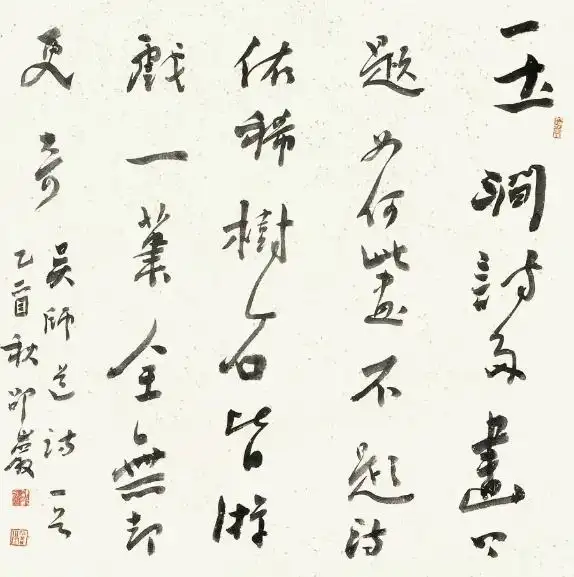 玉澗詩多畫
題如何此畫不題詩
依稀樹石皆游
戲一葉全無却
更奇
吳師道詩一首
乙酉秋邵巖